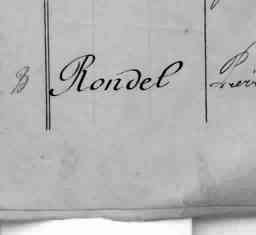 B Rondel